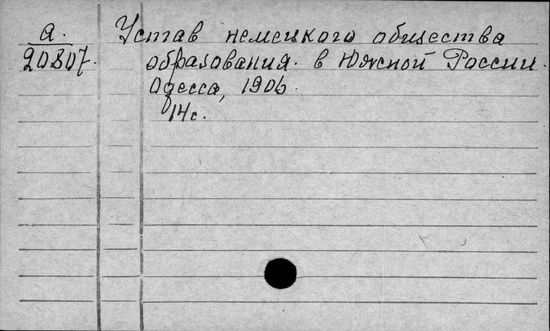 а. Устав немецкого общества
20807. образования. в Южной России.
Одесса, 1906.
14с.